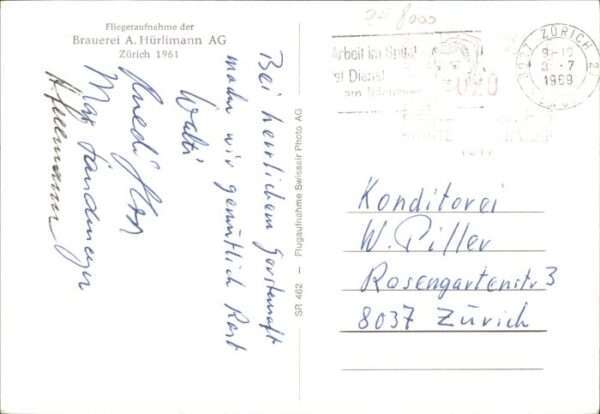 Fliegeraufnahme der
Brauerei A. Hürlimann AG
Zürich 1961
Bei herrlichem Gerstensaft
machen wir gemütlich Rast
Walti
Ruedi
Max
SR 462 – Flugaufnahme Swissair Photo AG
Arbeit im Spital
ist Dienst
am
ZÜRICH
1969
Konditorei
W. Piller
Rosengartenstr 3
8037 Zürich